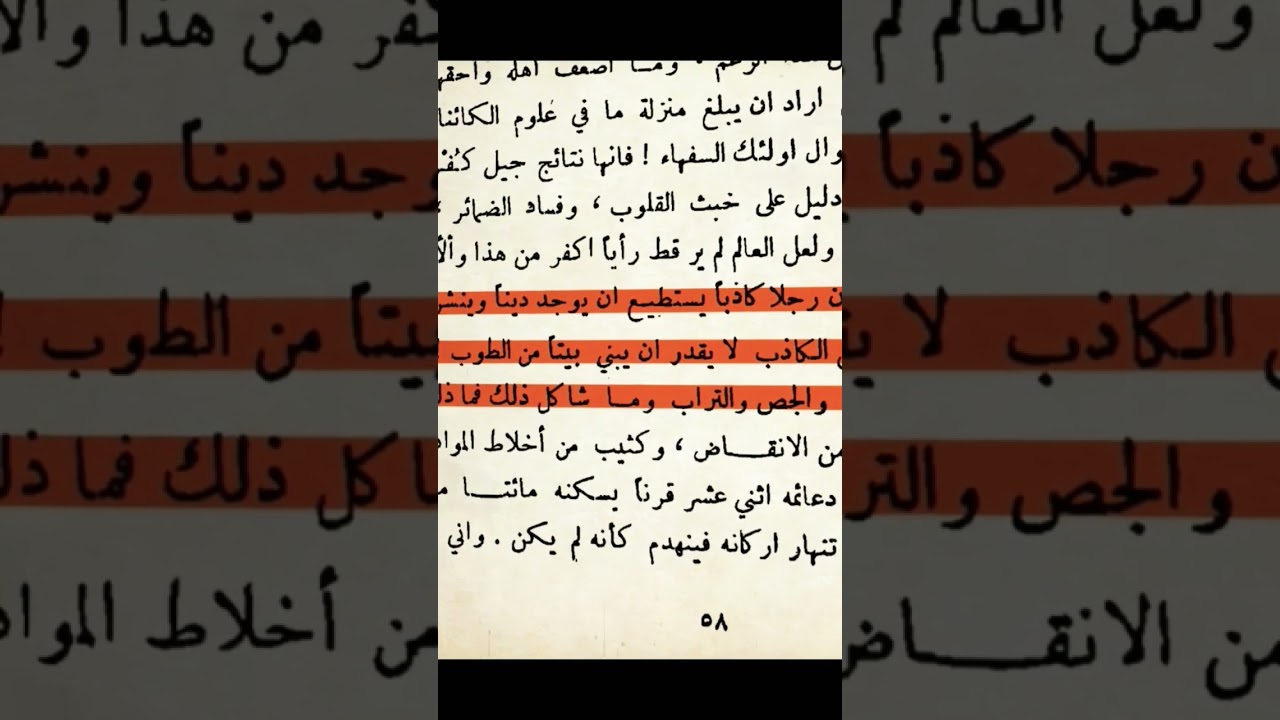 الزعم ، وما اضعف اهله
اراد ان يبلغ منزلة ما في علوم الكائنا
وال اولئك السفهاء ! فانها نتائج جيل
دليل على خبث القلوب ، وفساد الضمائر ،
ولعل العالم لم ير قط رأياً اكفر من هذا وألأ
ن رجلا كاذباً يستطيع ان يوجد ديناً وينشر
الكاذب لا يقدر ان يبني بيتاً من الطوب !
والجص والتراب وما شاكل ذلك فما ذل
من الانقاض ، وكثيب من أخلاط المواد
دعائمه اثني عشر قرناً يسكنه مائتا م
تنهار اركانه فينهدم كأنه لم يكن . واني
٥٨